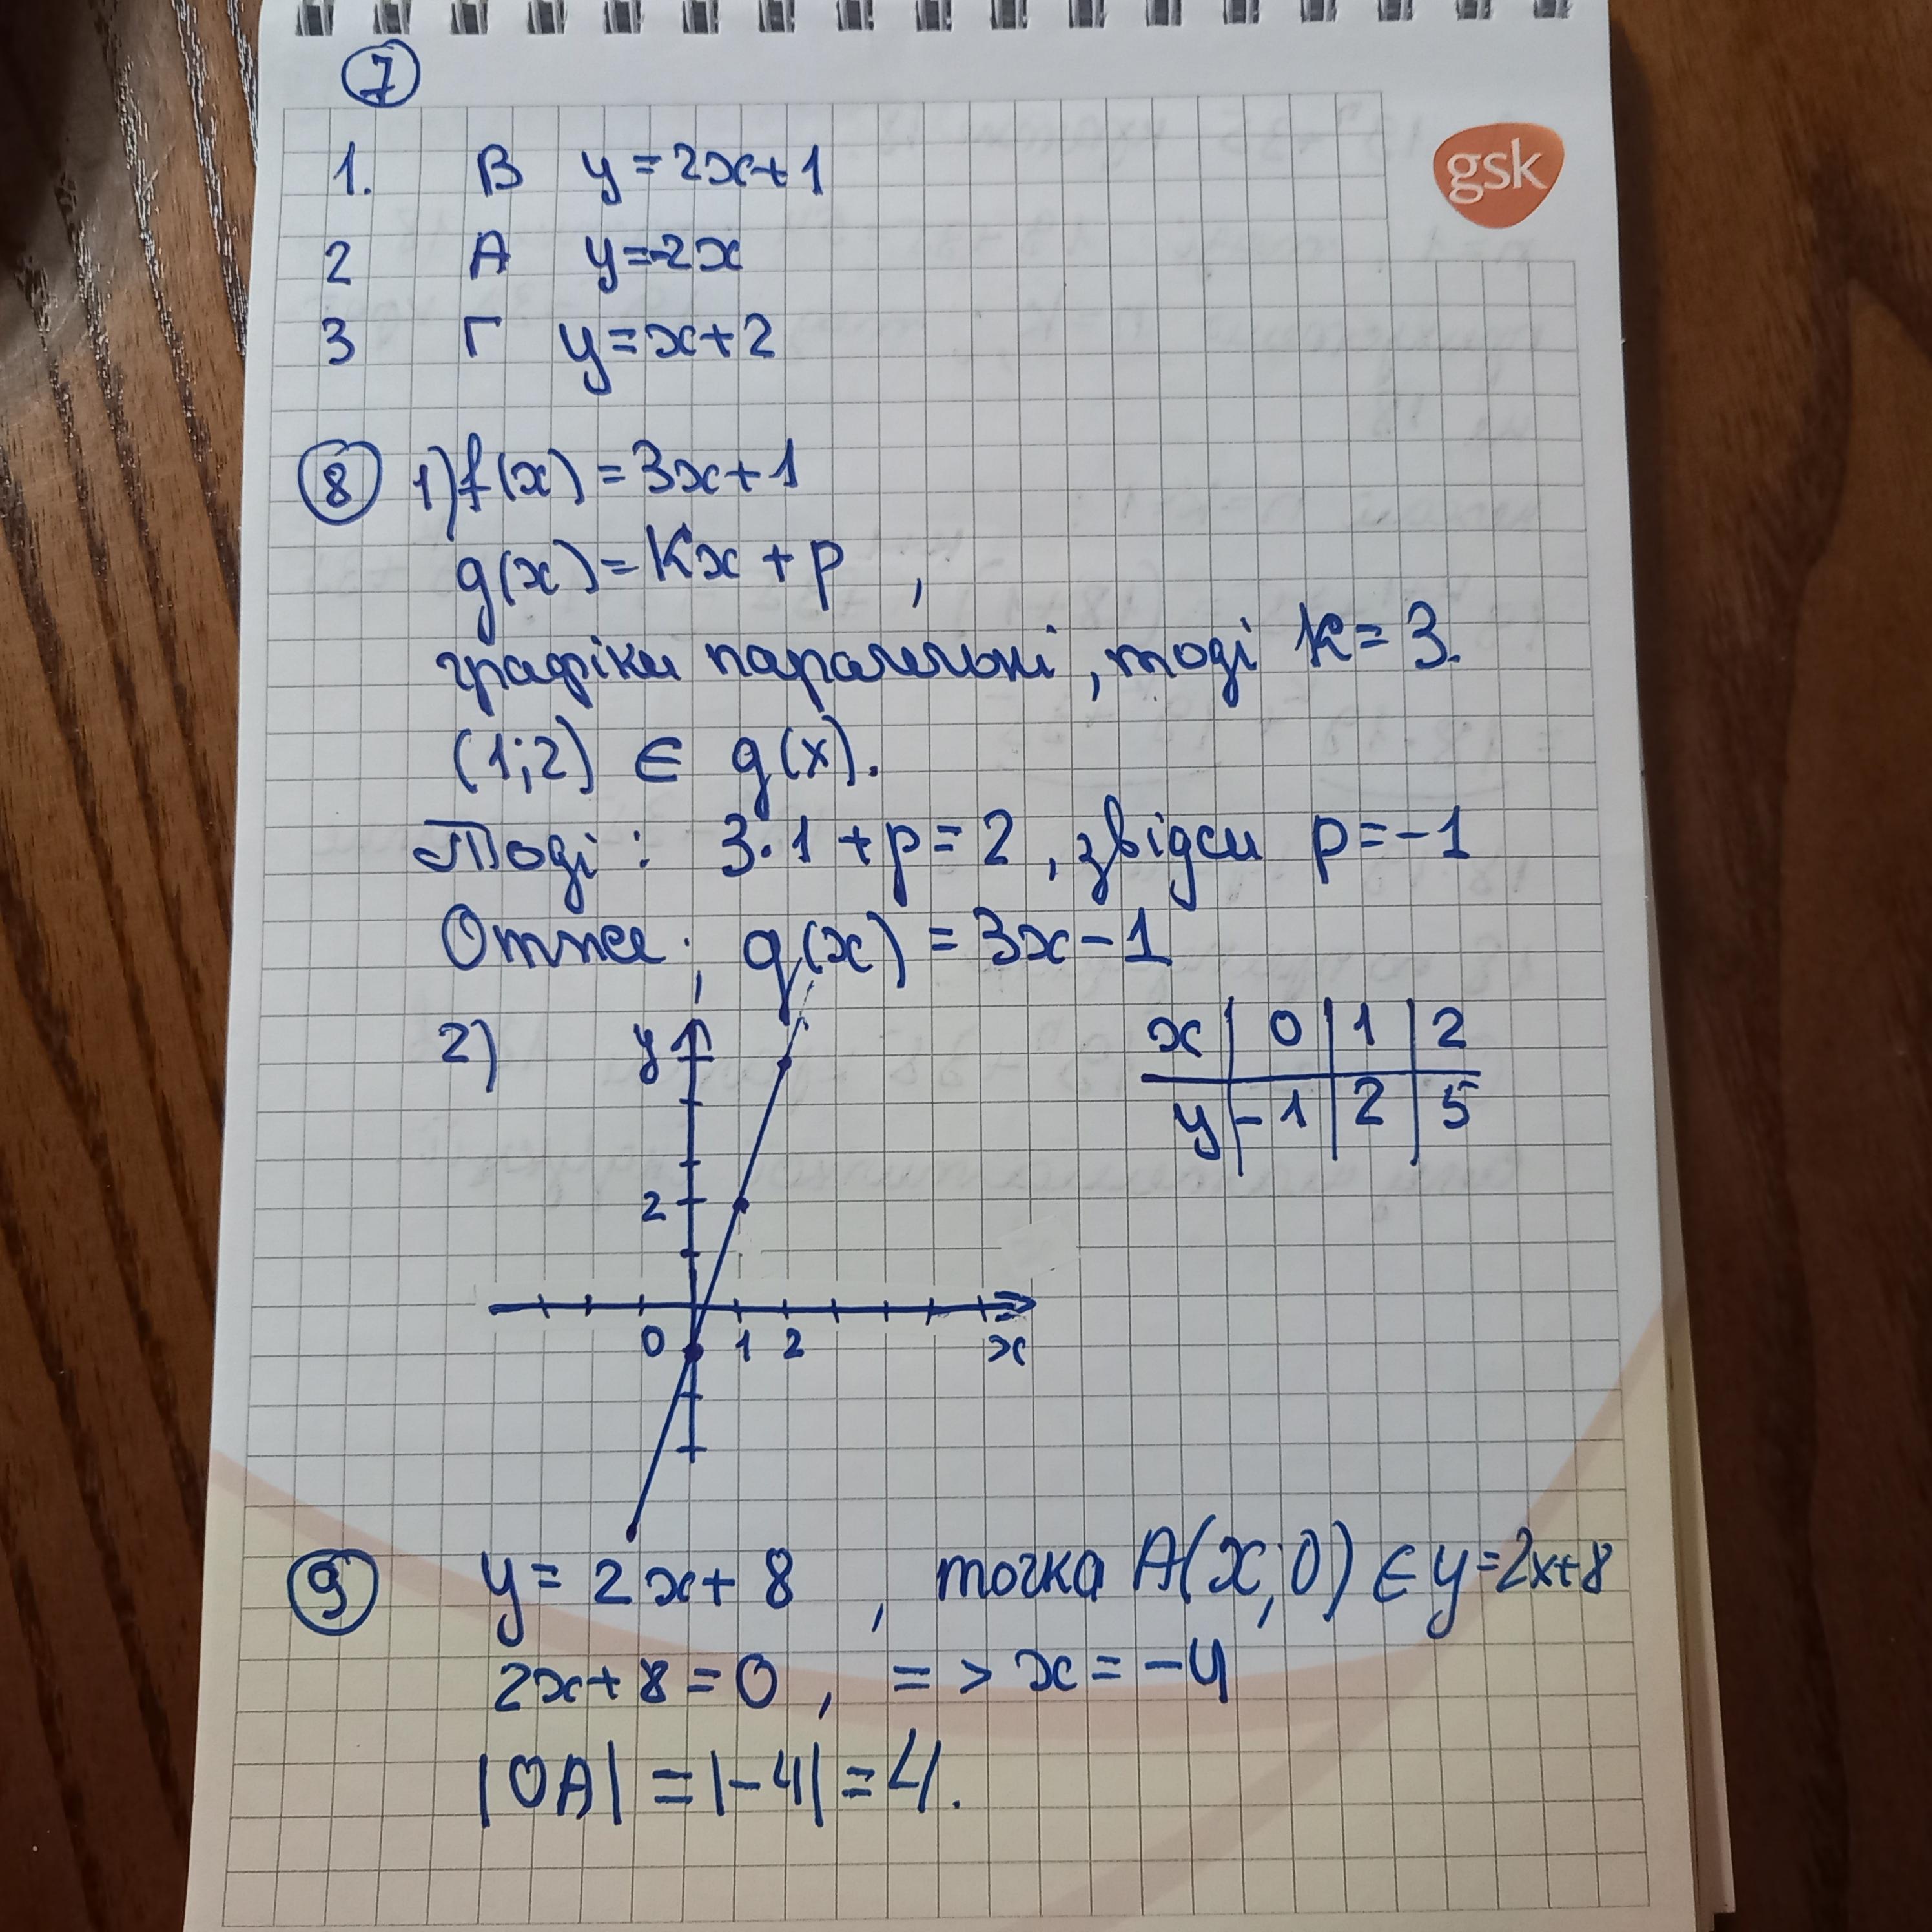 7
gsk
1. В y=2x+1
2 А y=-2x
3 Г y=x+2
8 1) f(x)=3x+1
g(x)=Kx+p ,
графіки паралельні, тоді k=3.
(1;2) ∈ g(x).
Тоді: 3·1+p=2, звідси p=-1
Отже; g(x)=3x-1
2) y
x | 0 | 1 | 2
y | -1 | 2 | 5
2
0 1 2 x
9 y=2x+8 , точка A(x;0) ∈ y=2x+8
2x+8=0, => x=-4
|OA|=|-4|=4.